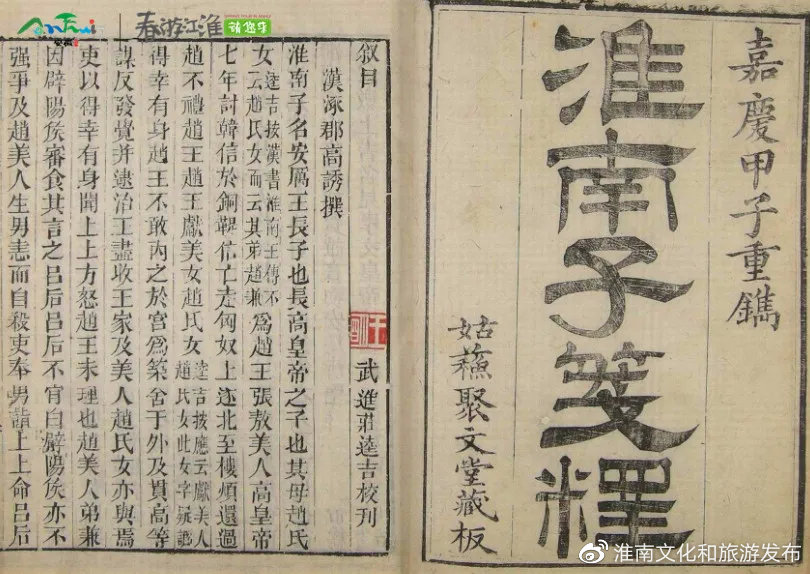 嘉慶甲子重鐫
淮南子箋釋
姑蘓聚文堂藏板
叙目 武進莊逵吉校刊
漢涿郡高誘撰
淮南子名安厲王長子也長高皇帝之子也其母趙氏
女逵吉按漢書淮南王傳不云趙氏女而云其弟趙兼爲趙王張敖美人高皇帝
七年討韓信於銅鞮信亡走匈奴上遂北至樓煩還過
趙不禮趙王趙王獻美女趙氏女逵吉按應云獻美人趙氏女此女字疑譌
得幸有身趙王不敢內之於宮爲築舍于外及貫高等
謀反發覺并逮治王盡收王家及美人趙氏女亦與焉
吏以得幸有身聞上上方怒趙王未理也趙美人弟兼
因辟陽侯審食其言之呂后呂后不肯白辟陽侯亦不
强爭及趙美人生男恚而自殺吏奉男詣上上命呂后
AnHui
春游江淮 请您来
@淮南文化和旅游发布